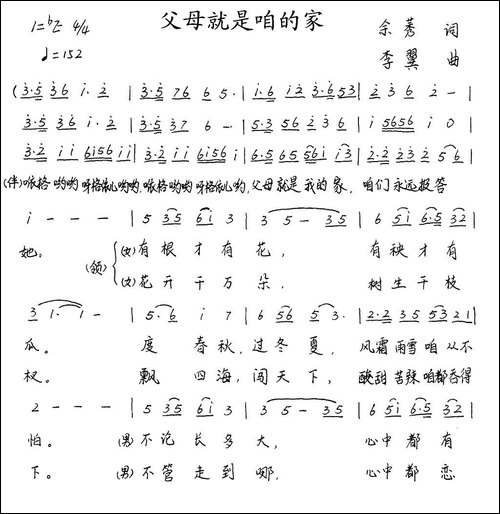 父母就是咱的家
1=♭E 4/4 余莠 词
♩=152 李翼 曲
(3·5 36 i·2 | 3·5 76 65· | i·6 i2 3·653 | 236 2 - |
3·5 36 i·2 | 3·5 37 6 - | 5·3 56 2 3 6 | i 5656 i 0 |
3·2 ii 6i56 ii | 3·2 ii 6i56 i | 6·5 65 56i i3 | 2·2 232 5 6 |
(伴) 格哟哟 呀格依儿哟哟, 格哟哟 呀格依儿哟, 父母就是我的家, 咱们永远报答
i - - - | 5 35 6i 3 | 3 5 - 35 | 6 5i 6·5 32 |
她。 (领) (女)有根才有花, 有秧才有
(女)花开千万朵. 树生千枝
3 1· 1 - | 5·6 i 7 | 6 56 53· | 2·2 35 5321 |
瓜。 度春秋,过冬夏, 风霜雨雪咱从不
杈。 飘四海,闯天下, 酸甜苦辣咱都吞得
2 - - - | 5 35 6i 3 | 3 5 - 35 | 6 5i 6·5 32 |
怕。 (男)不论长多大, 心中都有
下。 (男)不管走到哪, 心中都恋